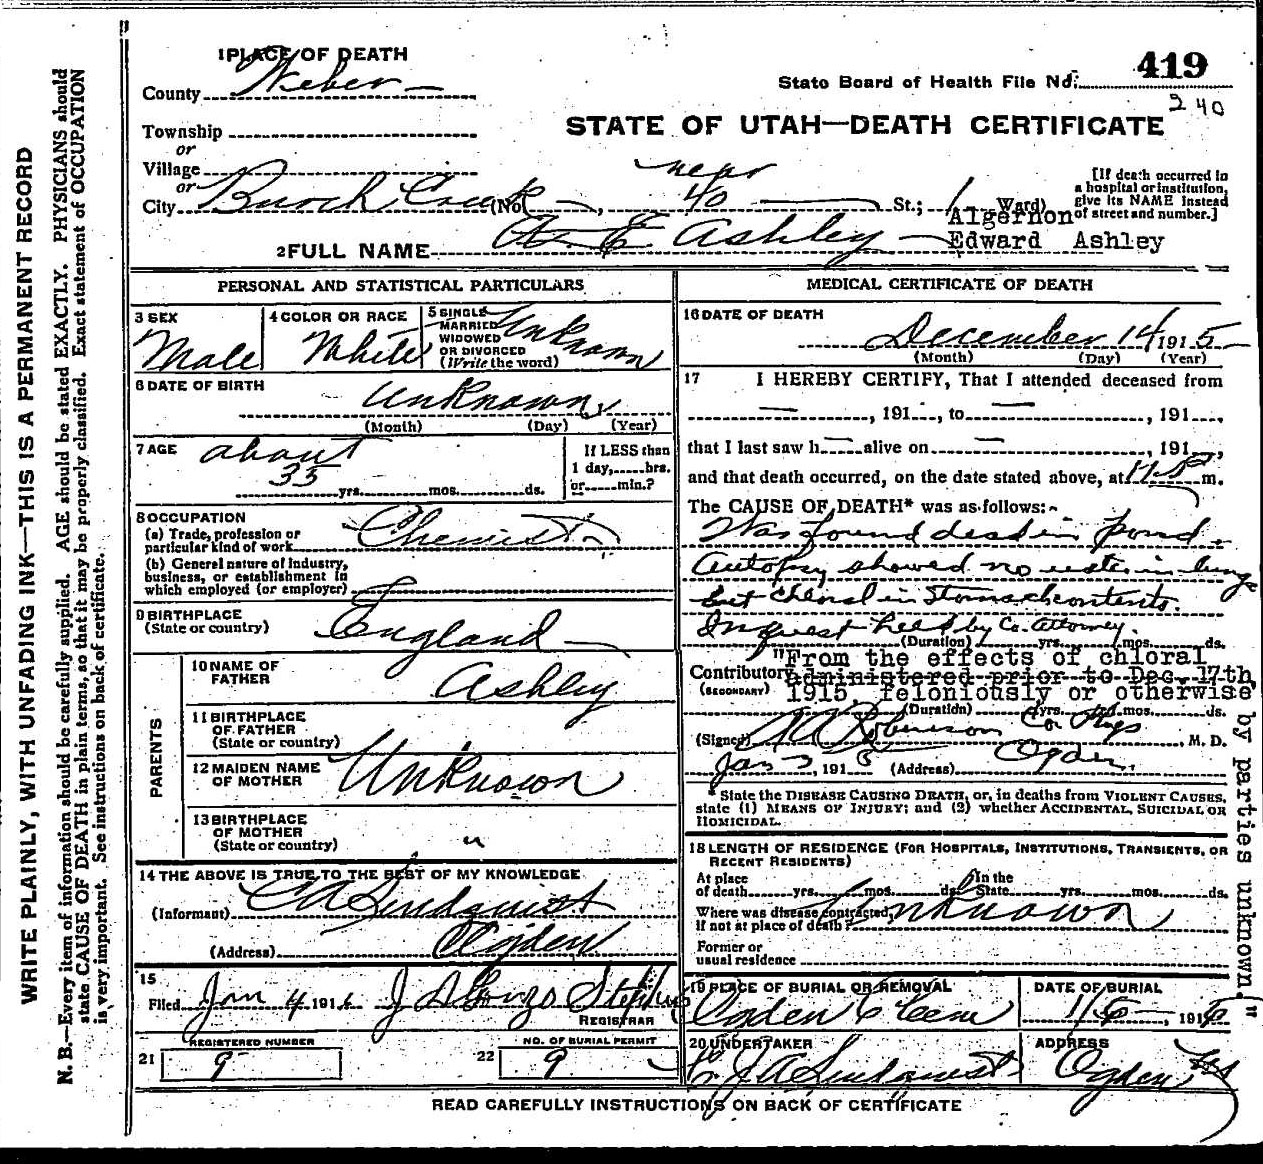 WRITE PLAINLY, WITH UNFADING INK—THIS IS A PERMANENT RECORD
N. B.—Every item of information should be carefully supplied. AGE should be stated EXACTLY. PHYSICIANS should
state CAUSE OF DEATH in plain terms, so that it may be properly classified. Exact statement of OCCUPATION
is very important. See instructions on back of certificate.
1 PLACE OF DEATH
County Weber
Township
or
Village
or
City Burch Creek (No. near 40 St.; 1 Ward)
State Board of Health File No. 419
240
STATE OF UTAH—DEATH CERTIFICATE
[If death occurred in
a hospital or institution,
give its NAME instead
of street and number.]
2 FULL NAME A. E. Ashley Algernon
Edward Ashley
PERSONAL AND STATISTICAL PARTICULARS
3 SEX
Male
4 COLOR OR RACE
White
5 SINGLE
MARRIED
WIDOWED
OR DIVORCED
(Write the word)
Unknown
6 DATE OF BIRTH
Unknown
(Month) (Day) (Year)
7 AGE
about
35 yrs. mos. ds.
If LESS than
1 day, hrs.
or min.?
8 OCCUPATION
(a) Trade, profession or
particular kind of work Chemist
(b) General nature of Industry,
business, or establishment in
which employed (or employer)
9 BIRTHPLACE
(State or country)
England
PARENTS
10 NAME OF
FATHER
Ashley
11 BIRTHPLACE
OF FATHER
(State or country)
12 MAIDEN NAME
OF MOTHER
Unknown
13 BIRTHPLACE
OF MOTHER
(State or country)
"
14 THE ABOVE IS TRUE TO THE BEST OF MY KNOWLEDGE
(Informant) Lindquist
(Address) Ogden
15
Filed Jan 4 1916
REGISTRAR
REGISTERED NUMBER
21 9
NO. OF BURIAL PERMIT
22 9
MEDICAL CERTIFICATE OF DEATH
16 DATE OF DEATH
December 14 1915
(Month) (Day) (Year)
17 I HEREBY CERTIFY, That I attended deceased from
— , 191 , to — , 191 ,
that I last saw h — alive on — , 191 ,
and that death occurred, on the date stated above, at m.
The CAUSE OF DEATH* was as follows:
Was found dead in pond.
Autopsy showed no water in lungs
but chloral in stomach contents.
Inquest held by Co. Attorney.
(Duration) yrs. mos. ds.
Contributory
(SECONDARY)
"From the effects of chloral
administered prior to Dec. 17th,
1915, feloniously or otherwise
by parties unknown."
(Duration) yrs. mos. ds.
(Signed) Robinson Co Phys , M. D.
Jan 3, 191 (Address) Ogden
* State the DISEASE CAUSING DEATH, or, in deaths from VIOLENT CAUSES,
state (1) MEANS OF INJURY; and (2) whether ACCIDENTAL, SUICIDAL OR
HOMICIDAL.
18 LENGTH OF RESIDENCE (FOR HOSPITALS, INSTITUTIONS, TRANSIENTS, OR
RECENT RESIDENTS)
At place
of death yrs. mos. ds.
In the
State yrs. mos. ds.
Where was disease contracted,
if not at place of death? Unknown
Former or
usual residence
19 PLACE OF BURIAL OR REMOVAL
Ogden C Cem
DATE OF BURIAL
191
20 UNDERTAKER
Lindquist
ADDRESS
Ogden
READ CAREFULLY INSTRUCTIONS ON BACK OF CERTIFICATE